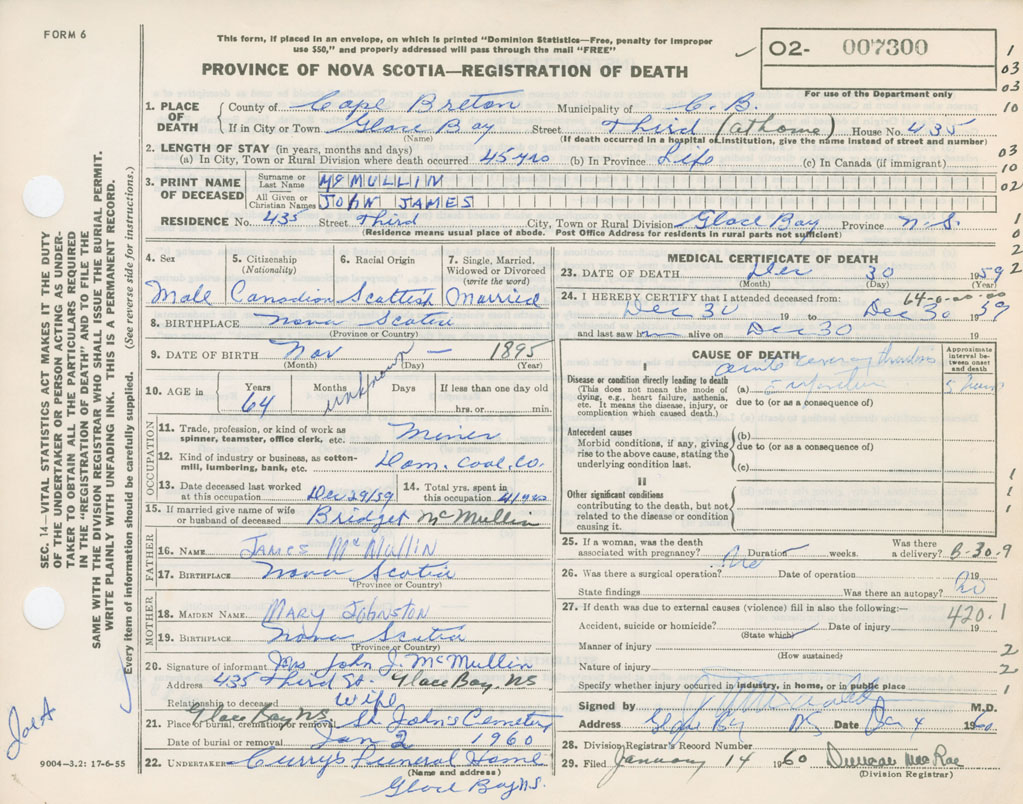 FORM 6
This form, if placed in an envelope, on which is printed "Dominion Statistics—Free, penalty for improper
use $50," and properly addressed will pass through the mail "FREE"
PROVINCE OF NOVA SCOTIA—REGISTRATION OF DEATH
02- 007300
For use of the Department only
1. PLACE OF DEATH County of Cape Breton Municipality of C. B.
If in City or Town Glace Bay Street Third (at home) House No. 435
(Name) (If death occurred in a hospital or institution, give the name instead of street and number)
2. LENGTH OF STAY (in years, months and days)
(a) In City, Town or Rural Division where death occurred 45 yrs (b) In Province Life (c) In Canada (if immigrant)
3. PRINT NAME OF DECEASED Surname or Last Name McMULLIN
All Given or Christian Names JOHN JAMES
RESIDENCE No. 435 Street Third City, Town or Rural Division Glace Bay Province N.S.
(Residence means usual place of abode. Post Office Address for residents in rural parts not sufficient)
4. Sex Male
5. Citizenship (Nationality) Canadian
6. Racial Origin Scottish
7. Single, Married, Widowed or Divorced (write the word) Married
8. BIRTHPLACE Nova Scotia
(Province or Country)
9. DATE OF BIRTH Nov — 1895
(Month) (Day) (Year)
10. AGE in Years 64 Months Days unknown If less than one day old
hrs. or min.
OCCUPATION
11. Trade, profession, or kind of work as spinner, teamster, office clerk, etc. Miner
12. Kind of industry or business, as cotton-mill, lumbering, bank, etc. Dom. Coal. Co.
13. Date deceased last worked at this occupation Dec 29/59 14. Total yrs. spent in this occupation 41 yrs
15. If married give name of wife or husband of deceased Bridget McMullin
FATHER
16. NAME JAMES McMULLIN
17. BIRTHPLACE Nova Scotia
(Province or Country)
MOTHER
18. MAIDEN NAME MARY JOHNSTON
19. BIRTHPLACE Nova Scotia
(Province or Country)
20. Signature of informant Mrs John J. McMullin
Address 435 Third St. Glace Bay, NS
Relationship to deceased Wife
Glace Bay NS
21. Place of burial, cremation or removal St. John's Cemetery
Date of burial or removal Jan 2 1960
22. UNDERTAKER Curry's Funeral Home
(Name and address)
Glace Bay NS.
MEDICAL CERTIFICATE OF DEATH
23. DATE OF DEATH Dec 30 1959
(Month) (Day) (Year)
64-0-00-00
24. I HEREBY CERTIFY that I attended deceased from:
Dec 30 19 to Dec 30 1959
and last saw him alive on Dec 30 19
CAUSE OF DEATH
Approximate interval between onset and death
I
Disease or condition directly leading to death
(This does not mean the mode of dying, e.g., heart failure, asthenia, etc. It means the disease, injury, or complication which caused death.)
(a)
due to (or as a consequence of)
Antecedent causes
Morbid conditions, if any, giving rise to the above cause, stating the underlying condition last.
(b)
due to (or as a consequence of)
(c)
II
Other significant conditions
contributing to the death, but not related to the disease or condition causing it.
25. If a woman, was the death associated with pregnancy? Duration weeks. Was there a delivery? B-30.9
26. Was there a surgical operation? No Date of operation 19
State findings Was there an autopsy? No
27. If death was due to external causes (violence) fill in also the following:—
420.1
Accident, suicide or homicide? Date of injury 19
(State which)
Manner of injury
(How sustained)
Nature of injury
Specify whether injury occurred in industry, in home, or in public place
Signed by M.D.
Address Glace Bay NS Date Jan 4 1960
28. Division Registrar's Record Number
29. Filed January 14 1960 Duncan MacRae
(Division Registrar)
SEC. 14—VITAL STATISTICS ACT MAKES IT THE DUTY
OF THE UNDERTAKER OR PERSON ACTING AS UNDER-
TAKER TO OBTAIN ALL THE PARTICULARS REQUIRED
IN THE "REGISTRATION OF DEATH" AND TO FILE THE
SAME WITH THE DIVISION REGISTRAR WHO SHALL ISSUE THE BURIAL PERMIT.
WRITE PLAINLY WITH UNFADING INK. THIS IS A PERMANENT RECORD.
Every item of information should be carefully supplied. (See reverse side for instructions.)
9004-3.2: 17-6-55
1
03
03
10
03
10
02
1
0
2
2
1
1
1
2
2
1